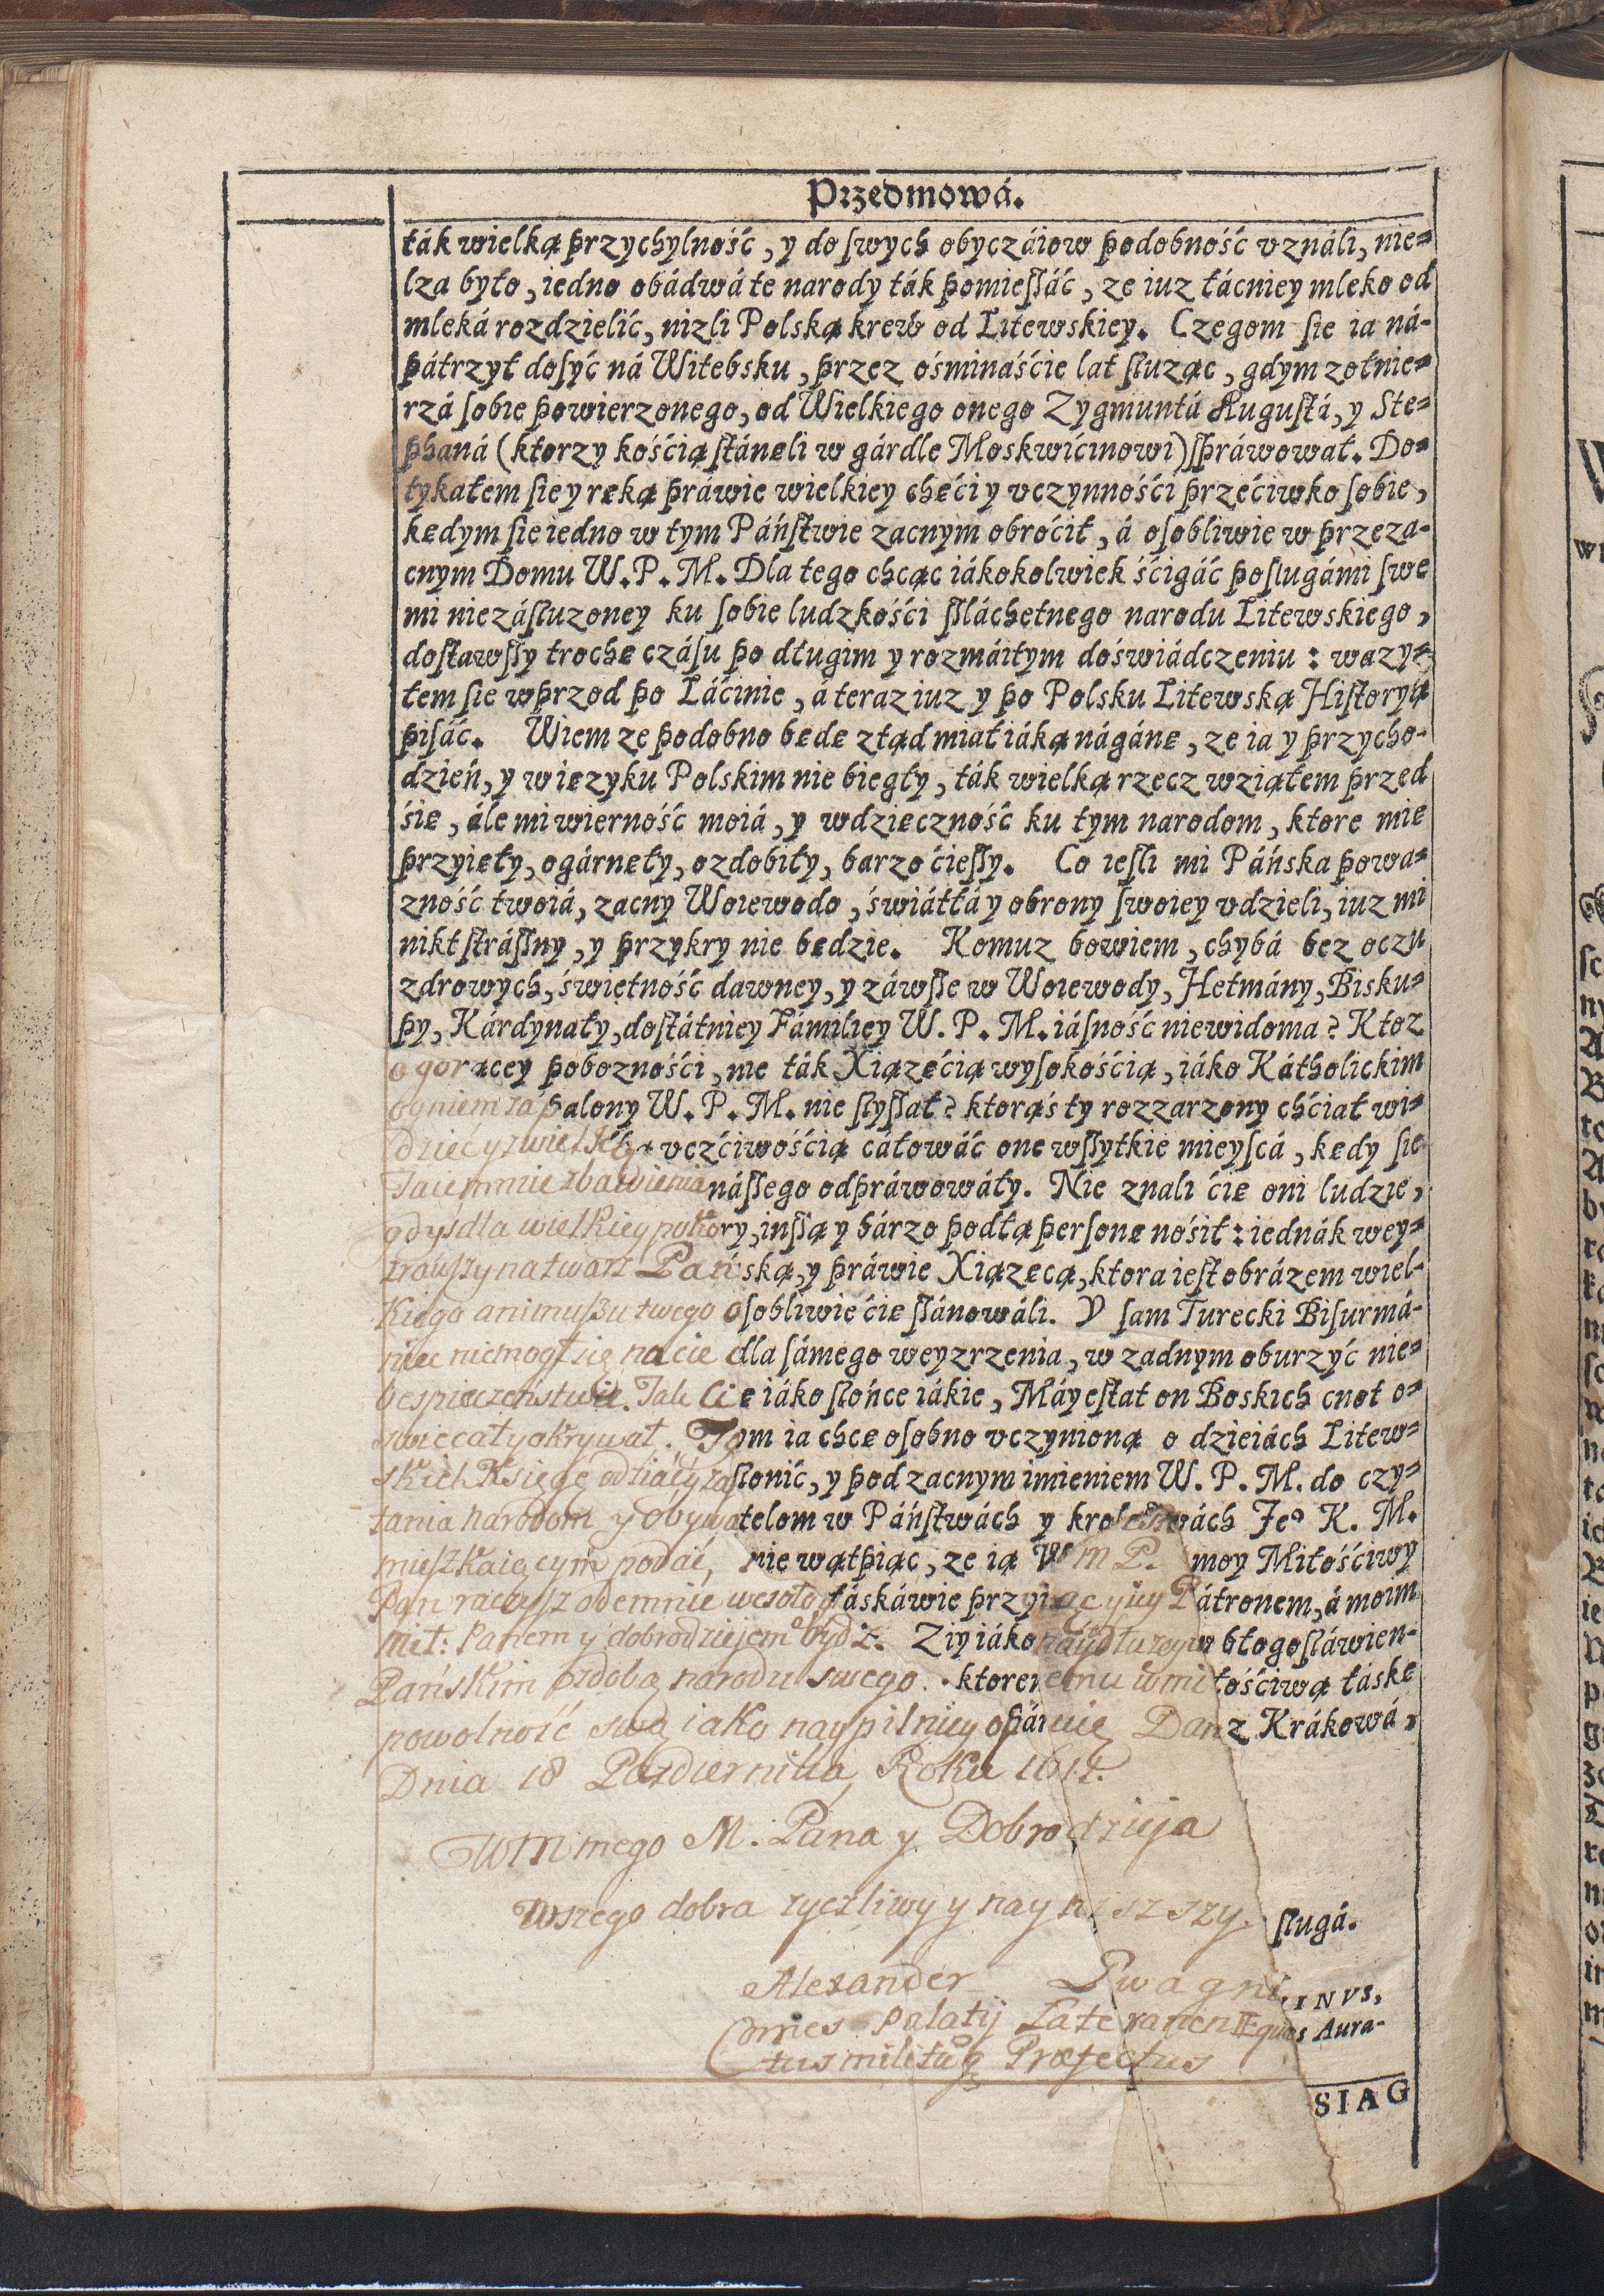 Przedmowá.
ták wielką przychylność, y do swych obyczáiow podobność vználi, nie=
lza było, iedno obádwá te narody ták pomieszáć, ze iuz łácniey mleko od
mleká rozdzielić, nizli Polską krew od Litewskiey. Czegom sie ia ná-
pátrzył dosyć ná Witebsku, przez ośmináście lat służąc, gdym zołnie=
rzá sobie powierzonego, od Wielkiego onego Zygmuntá Augustá, y Ste=
phaná (ktorzy kością stáneli w gárdle Moskwićinowi) spráwował. Do=
tykałem sie y ręką práwie wielkiey chęći y vczynnośći przećiwko sobie,
kędym sie iedno w tym Páństwie zacnym obroćił, á osobliwie w przeza-
cnym Domu W. P. M. Dla tego chcąc iákokolwiek śćigáć posługámi swe
mi niezásłuzoney ku sobie ludzkośći szláchetnego narodu Litewskiego,
dostawszy trochę czásu po długim y rozmáitym doświádczeniu: wazy=
łem sie wprzod po Láćinie, á teraz iuz y po Polsku Litewską Historyą
pisáć. Wiem ze podobno będę ztąd miał iáką nágánę, ze ia y przycho-
dzień, y w ięzyku Polskim nie biegły, ták wielką rzecz wziąłem przed
śię, ále mi wierność moiá, y wdzięczność ku tym narodom, ktore mię
przyięły, ogárnęły, ozdobiły, barzo ćieszy. Co iesli mi Páńska powa=
zność twoiá, zacny Woiewodo, świátłá y obrony swoiey vdzieli, iuz mi
nikt strászny, y przykry nie będzie. Komuz bowiem, chybá bez oczu
zdrowych, świetność dawney, y záwsze w Woiewody, Hetmány, Bisku=
py, Kárdynały, dostátniey Fámiliey W. P. M. iásność niewidoma? Ktoz
o gorącey pobozności, nie ták Xiązęćią wysokośćią, iáko Kátholickim
ogniem zápalony W. P. M. nie słyszał? ktorąś ty rozzarzony chćiał wi=
dzieć y z wielką vczćiwośćią cáłowáć one wszytkie mieyscá, kędy się
Taiemnice zbawienia nászego odpráwowáły. Nie znali ćię oni ludzie,
gdyś dla wielkiey pokory, inszą y bárzo podłą personę nośił: iednák wey=
zrawszy na twarz Pańską, y práwie Xiązęcą, ktora iest obrázem wiel-
kiego animuszu twego osobliwie ćię szánowáli. Y sam Turecki Bisurmá-
niec niemogł się na cie dla sámego weyzrzenia, w zadnym oburzyć nie=
bespieczeństwie. Tak cie iáko słońce iákie, Máyestat on Boskich cnot o=
swiecał y okrywał. Tym ia chcę osobno vczynioną o dzieiách Litew=
skich Księgę odziać y zasłonić, y pod zacnym imieniem W. P. M. do czy=
tania narodom y obywatelom w Páństwách y krolestwách Jeº K. M.
mieszkaiącym podać, nie wątpiąc, ze ią W m P. moy Miłośćiwy
Pan raczysz odemnie wesoło y łáskáwie przyiąc y iey Pátronem, á moim
Mił: Panem y dobrodziejem bydz. Ziy iáko náydłuzey w błogosłáwien-
Pańskim ozdobą narodu swego. ktoremu w miłośćiwą łáskę
powolność swą iako naypilniey ofiáruię Dan z Krákowá,
Dnia 18 Pazdziernika Roku 1611.
WM mego M. Pana y Dobrodzieja
Wszego dobra zyczliwy y naynizszy sługá.
Alexander Gwagninvs,
Comes Palatij Lateranen Eques Aura-
tus militūq₃ Præfectus
SIAG